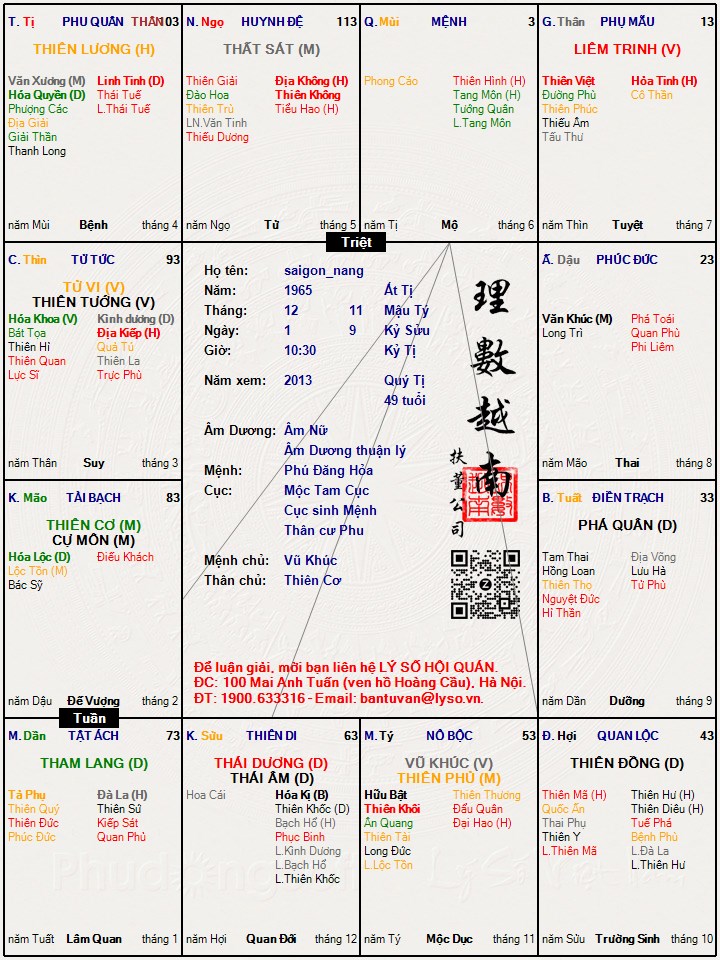 T. Tị PHU QUÂN THÂN 103
THIÊN LƯƠNG (H)
Văn Xương (M) Linh Tinh (D)
Hóa Quyền (D) Thái Tuế
Phượng Các L.Thái Tuế
Địa Giải
Giải Thần
Thanh Long
năm Mùi Bệnh tháng 4
N. Ngọ HUYNH ĐỆ 113
THẤT SÁT (M)
Thiên Giải Địa Không (H)
Đào Hoa Thiên Không
Thiên Trù Tiểu Hao (H)
LN.Văn Tinh
Thiếu Dương
năm Ngọ Tử tháng 5
Q. Mùi MỆNH 3
Phong Cáo Thiên Hình (H)
Tang Môn (H)
Tướng Quân
L.Tang Môn
năm Tị Mộ tháng 6
G. Thân PHỤ MẪU 13
LIÊM TRINH (V)
Thiên Việt Hỏa Tinh (H)
Đường Phù Cô Thần
Thiên Phúc
Thiếu Âm
Tấu Thư
năm Thìn Tuyệt tháng 7
Triệt
C. Thìn TỬ TỨC 93
TỬ VI (V)
THIÊN TƯỚNG (V)
Hóa Khoa (V) Kình dương (D)
Bát Tọa Địa Kiếp (H)
Thiên Hỉ Quả Tú
Thiên Quan Thiên La
Lực Sĩ Trực Phù
năm Thân Suy tháng 3
Họ tên: saigon_nang
Năm: 1965 Ất Tị
Tháng: 12 11 Mậu Tý
Ngày: 1 9 Kỷ Sửu
Giờ: 10:30 Kỷ Tị
Năm xem: 2013 Quý Tị
49 tuổi
Âm Dương: Âm Nữ
Âm Dương thuận lý
Mệnh: Phú Đăng Hỏa
Cục: Mộc Tam Cục
Cục sinh Mệnh
Thân cư Phu
Mệnh chủ: Vũ Khúc
Thân chủ: Thiên Cơ
理數越南
扶董公司
Để luận giải, mời bạn liên hệ LÝ SỐ HỘI QUÁN.
ĐC: 100 Mai Anh Tuấn (ven hồ Hoàng Cầu), Hà Nội.
ĐT: 1900.633316 - Email: bantuvan@lyso.vn.
Ấ. Dậu PHÚC ĐỨC 23
Văn Khúc (M) Phá Toái
Long Trì Quan Phù
Phi Liêm
năm Mão Thai tháng 8
K. Mão TÀI BẠCH 83
THIÊN CƠ (M)
CỰ MÔN (M)
Hóa Lộc (D) Điếu Khách
Lộc Tồn (M)
Bác Sỹ
năm Dậu Đế Vượng tháng 2
B. Tuất ĐIỀN TRẠCH 33
PHÁ QUÂN (D)
Tam Thai Địa Võng
Hồng Loan Lưu Hà
Thiên Thọ Tử Phù
Nguyệt Đức
Hỉ Thần
năm Dần Dưỡng tháng 9
Tuần
M. Dần TẬT ÁCH 73
THAM LANG (D)
Tả Phụ Đà La (H)
Thiên Quý Thiên Sứ
Thiên Đức Kiếp Sát
Phúc Đức Quan Phủ
năm Tuất Lâm Quan tháng 1
K. Sửu THIÊN DI 63
THÁI DƯƠNG (D)
THÁI ÂM (D)
Hoa Cái Hóa Kị (B)
Thiên Khốc (D)
Bạch Hổ (H)
Phục Binh
L.Kình Dương
L.Bạch Hổ
L.Thiên Khốc
năm Hợi Quan Đới tháng 12
M. Tý NÔ BỘC 53
VŨ KHÚC (V)
THIÊN PHỦ (M)
Hữu Bật Thiên Thương
Thiên Khôi Đẩu Quân
Ân Quang Đại Hao (H)
Thiên Tài
Long Đức
L.Lộc Tồn
năm Tý Mộc Dục tháng 11
Đ. Hợi QUAN LỘC 43
THIÊN ĐỒNG (D)
Thiên Mã (H) Thiên Hư (H)
Quốc Ấn Thiên Diêu (H)
Thai Phụ Tuế Phá
Thiên Y Bệnh Phù
L.Thiên Mã L.Đà La
L.Thiên Hư
năm Sửu Trường Sinh tháng 10